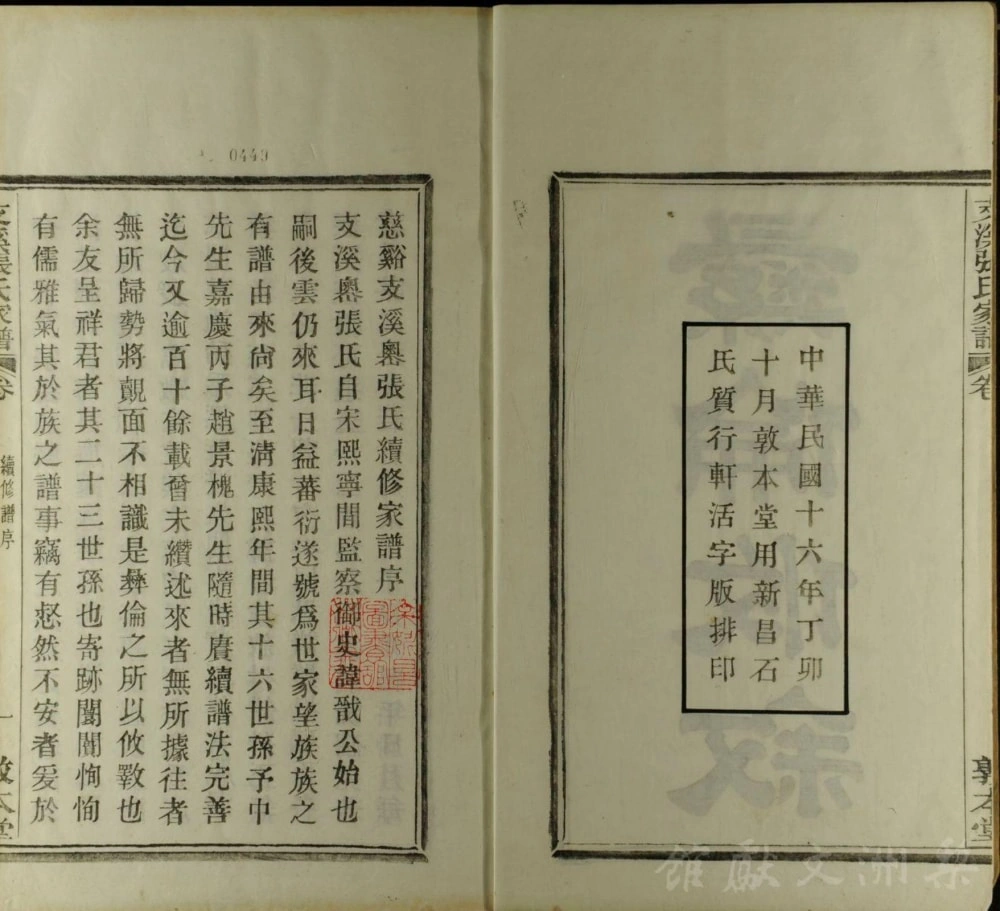 中華民國十六年丁卯
十月敦本堂用新昌石
氏質行軒活字版排印
支溪張氏家譜
卷
敦本堂
0449
慈谿支溪嶴張氏續修家譜序
支溪嶴張氏自宋熙寧間監察御史諱戩公始也
嗣後雲仍來耳日益蕃衍遂號爲世家望族族之
有譜由來尙矣至淸康熙年間其十六世孫予中
先生嘉慶丙子趙景槐先生隨時賡續譜法完善
迄今又逾百十餘載嘗未纘述來者無所據往者
無所歸勢將覿面不相識是彝倫之所以攸斁也
余友呈祥君者其二十三世孫也寄跡闤闠恂恂
有儒雅氣其於族之譜事竊有惄然不安者爰於
支溪張氏家譜
卷
續修譜序
一
敦本堂
梨洲文獻館